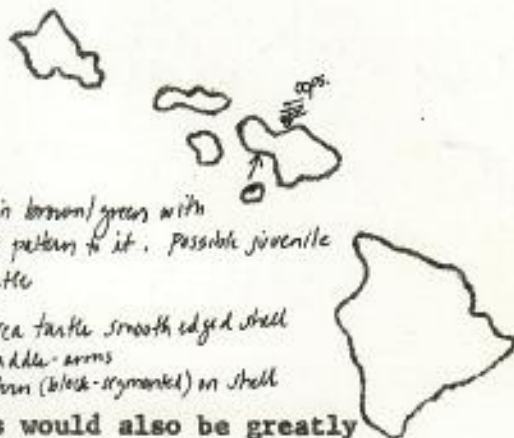 oops.
in brown/green with
pattern to it. Possible juvenile
tle
sea turtle smooth edged shell
addle-arms
(block-segmented) on shell
s would also be greatly